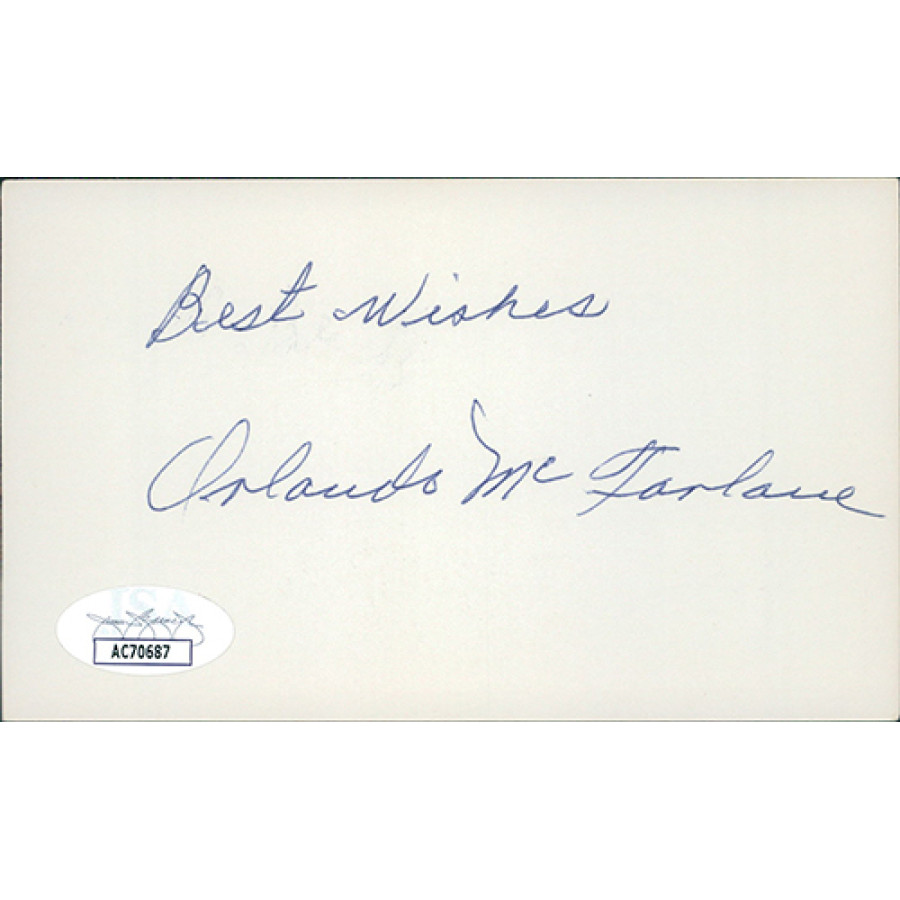 Best Wishes
Orlando McFarlane
JSA
AC70687